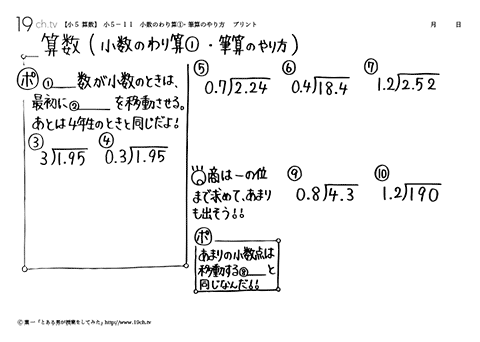 19ch.tv 【小5算数】 小5－11 小数のわり算①・筆算のやり方 プリント 月 日
算数（小数のわり算①・筆算のやり方）
ポ ①＿＿数が小数のときは、
最初に②＿＿を移動させる。
あとは4年生のときと同じだよ!
③ 3)1.95 ④ 0.3)1.95
⑤ 0.7)2.24 ⑥ 0.4)18.4 ⑦ 1.2)2.52
商は一の位
まで求めて、あまり
も出そう!!
⑨ 0.8)4.3 ⑩ 1.2)190
ポ
あまりの小数点は
移動する⑧＿＿と
同じなんだ!!
Ⓒ 葉一「とある男が授業をしてみた」http://www.19ch.tv